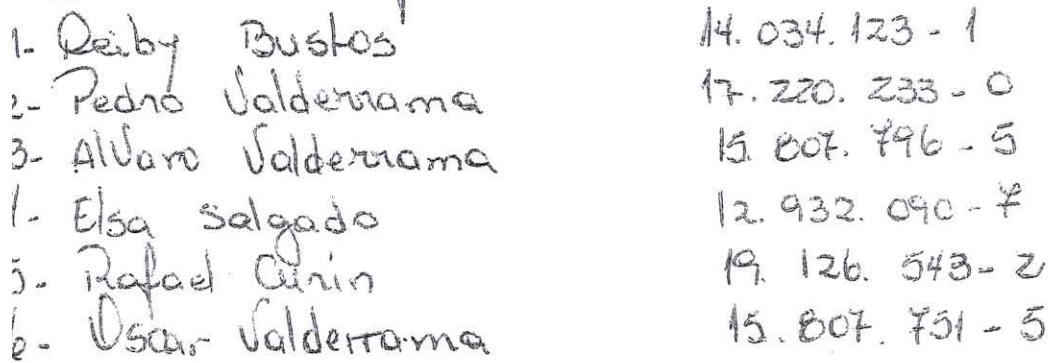 1- Reiby Bustos 14.034.123-1
2- Pedro Valderrama 17.220.233-0
3- Alvaro Valderrama 15.807.796-5
4- Elsa Salgado 12.932.090-7
5- Rafael Curin 19.126.543-2
6- Oscar Valderrama 15.807.751-5